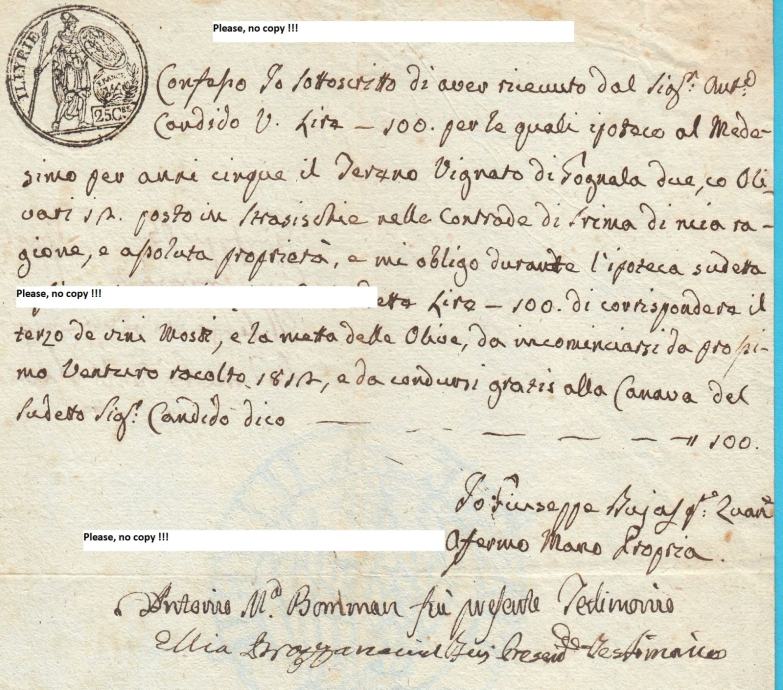 Please, no copy !!!
ILLYRIE
25 C.
Confesso Io sottoscritto di aver ricevuto dal Sigr. Antº
Candido V. Lire — 100. per le quali ipoteco al Mede-
simo per anni cinque il Tereno Vignato di Gognala due, co Oli-
vari 12. posto in Strasischie nelle Contrade di Srima di mia ra-
gione, e assoluta proprietà, e mi obligo durante l'ipoteca sudetta
Please, no copy !!!
detta Lire — 100. di corrispondere il
terzo de vini Mosti, e la metta delle Olive, da incominciarsi da prossi-
mo Venturo racolto 1812, e da condursi gratis alla Canava del
sudetto Sigr. Candido dico — — — — — 100.
Io Giuseppe qm: Zuanº
Please, no copy !!!
Afermo Mano Propria.
Antonio Mª Bomman fui presente Testimonio
Ellia Testimonio